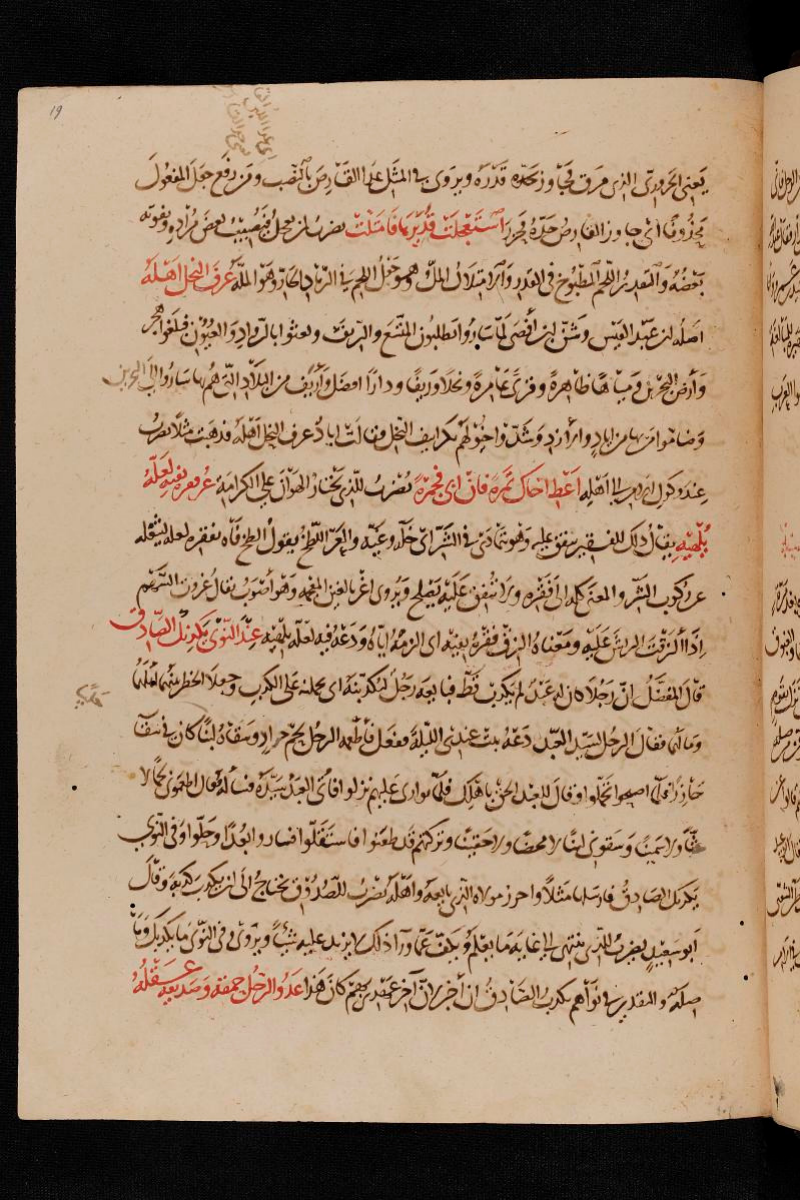 19
يعني الحزورة الذي مرق فجاوز حده قدره ويروى في المثل عدا القارص بالنصب ومن رفع جعل المفعول
محذوفا اي جاوز القارص حده فحزر استعجلت قديرها فامتلت يضرب لمن يعجل فيصيب بعض مراده ويفوته
بعضه والقدير اللحم المطبوخ في القدر والامتلال الملّ وهو جعل اللحم في الرماد الحار وهو الملة عرف النخل اهله
اصله ان عبد القيس وشن بن افصى لما ساروا يطلبون المتسع والريف وبعثوا بالرواد والعيون فبلغوا هجر
وارض البحرين ومياها ظاهرة وقرى عامرة ونخلا وريفا ودارا افضل وأريف من البلاد التي هم بها ساروا الى البحرين
وضاموا من بها من اياد والازد وشدوا خيولهم بكرانيف النخل فقالت اياد عرف النخل اهله فذهبت مثلا يضرب
عند وكول الامر الى اهله اعط اخاك تمرة فان ابى فجمرة يضرب للذي يختار الهوان على الكرامة عر فقره بفيه لعله
يلهيه يقال ذلك للفقير ينفق عليه وهو يتمادى في الشر اي خله وغيه والعر اللطخ يقول الطخ فاه بفقره لعله يشغله
عن ركوب الشر والمعنى كله الى فقره ولا تنفق عليه يصلح ويروى اغر بالغين المعجمة وهو أصوب يقال غروت السهم
اذا الزقت الريش عليه ومعناه الزق فقره بفيه اى الزمه اياه ودعه فيه لعله يلهيه عند النوى يكذبك الصادق
قال المفضل ان رجلا كان له عبد لم يكذب قط فبايعه رجل ليكذبنه اى يحمله على الكذب وجعلا الخطر بينهما اهلهما
ومالهما فقال الرجل لسيد العبد دعه يبت عندي الليلة ففعل فأطعمه الرجل لحم حوار وسقاه لبنا كان في سقاء
حازر فلما اصبحوا تحملوا وقال للعبد الحق باهلك فلما توارى عليهم نزلوا فأتى العبد سيده فسأله فقال اطعموني لحما لا
غثا ولا سمينا وسقوني لبنا لا محضا ولا حقينا وتركتهم قد ظعنوا فاستقلوا فساروا بعد او حلوا وفي النوى
يكذبك الصادق فارسلها مثلا واحرز مولاه الذي بايعه واهله يضرب للصدوق يحتاج الى ان يكذب كذبة وقال
ابو سعيد يضرب للذي ينتهى الى غاية ما يعلم ويكف عما ورآء ذلك لا يزيد عليه شيأ ويروى وفى النوى ما يكذبك وما
صلة والتقدير في نواهم يكذب الصادق ان أخبر ان آخر عهدي بهم كان هذا عدو الرجل حمقه وصديقه عقله